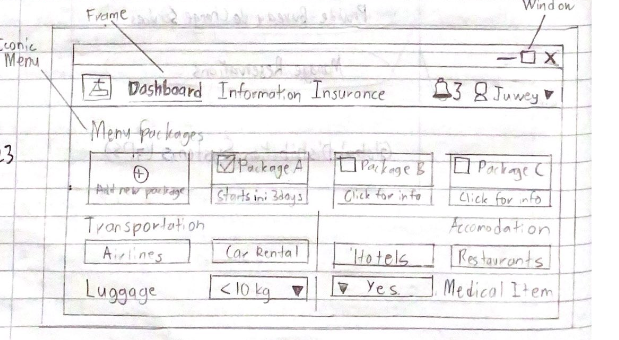 Frame
Window
Iconic
Menu
X
Dashboard Information Insurance 3 Juwey
Menu packages
23
Add new package
Package A
Starts in: 3days
Package B
Click for info
Package C
Click for info
Transportation
Accomodation
Airlines Car Rental Hotels Restaurants
Luggage <10 kg Yes Medical Item